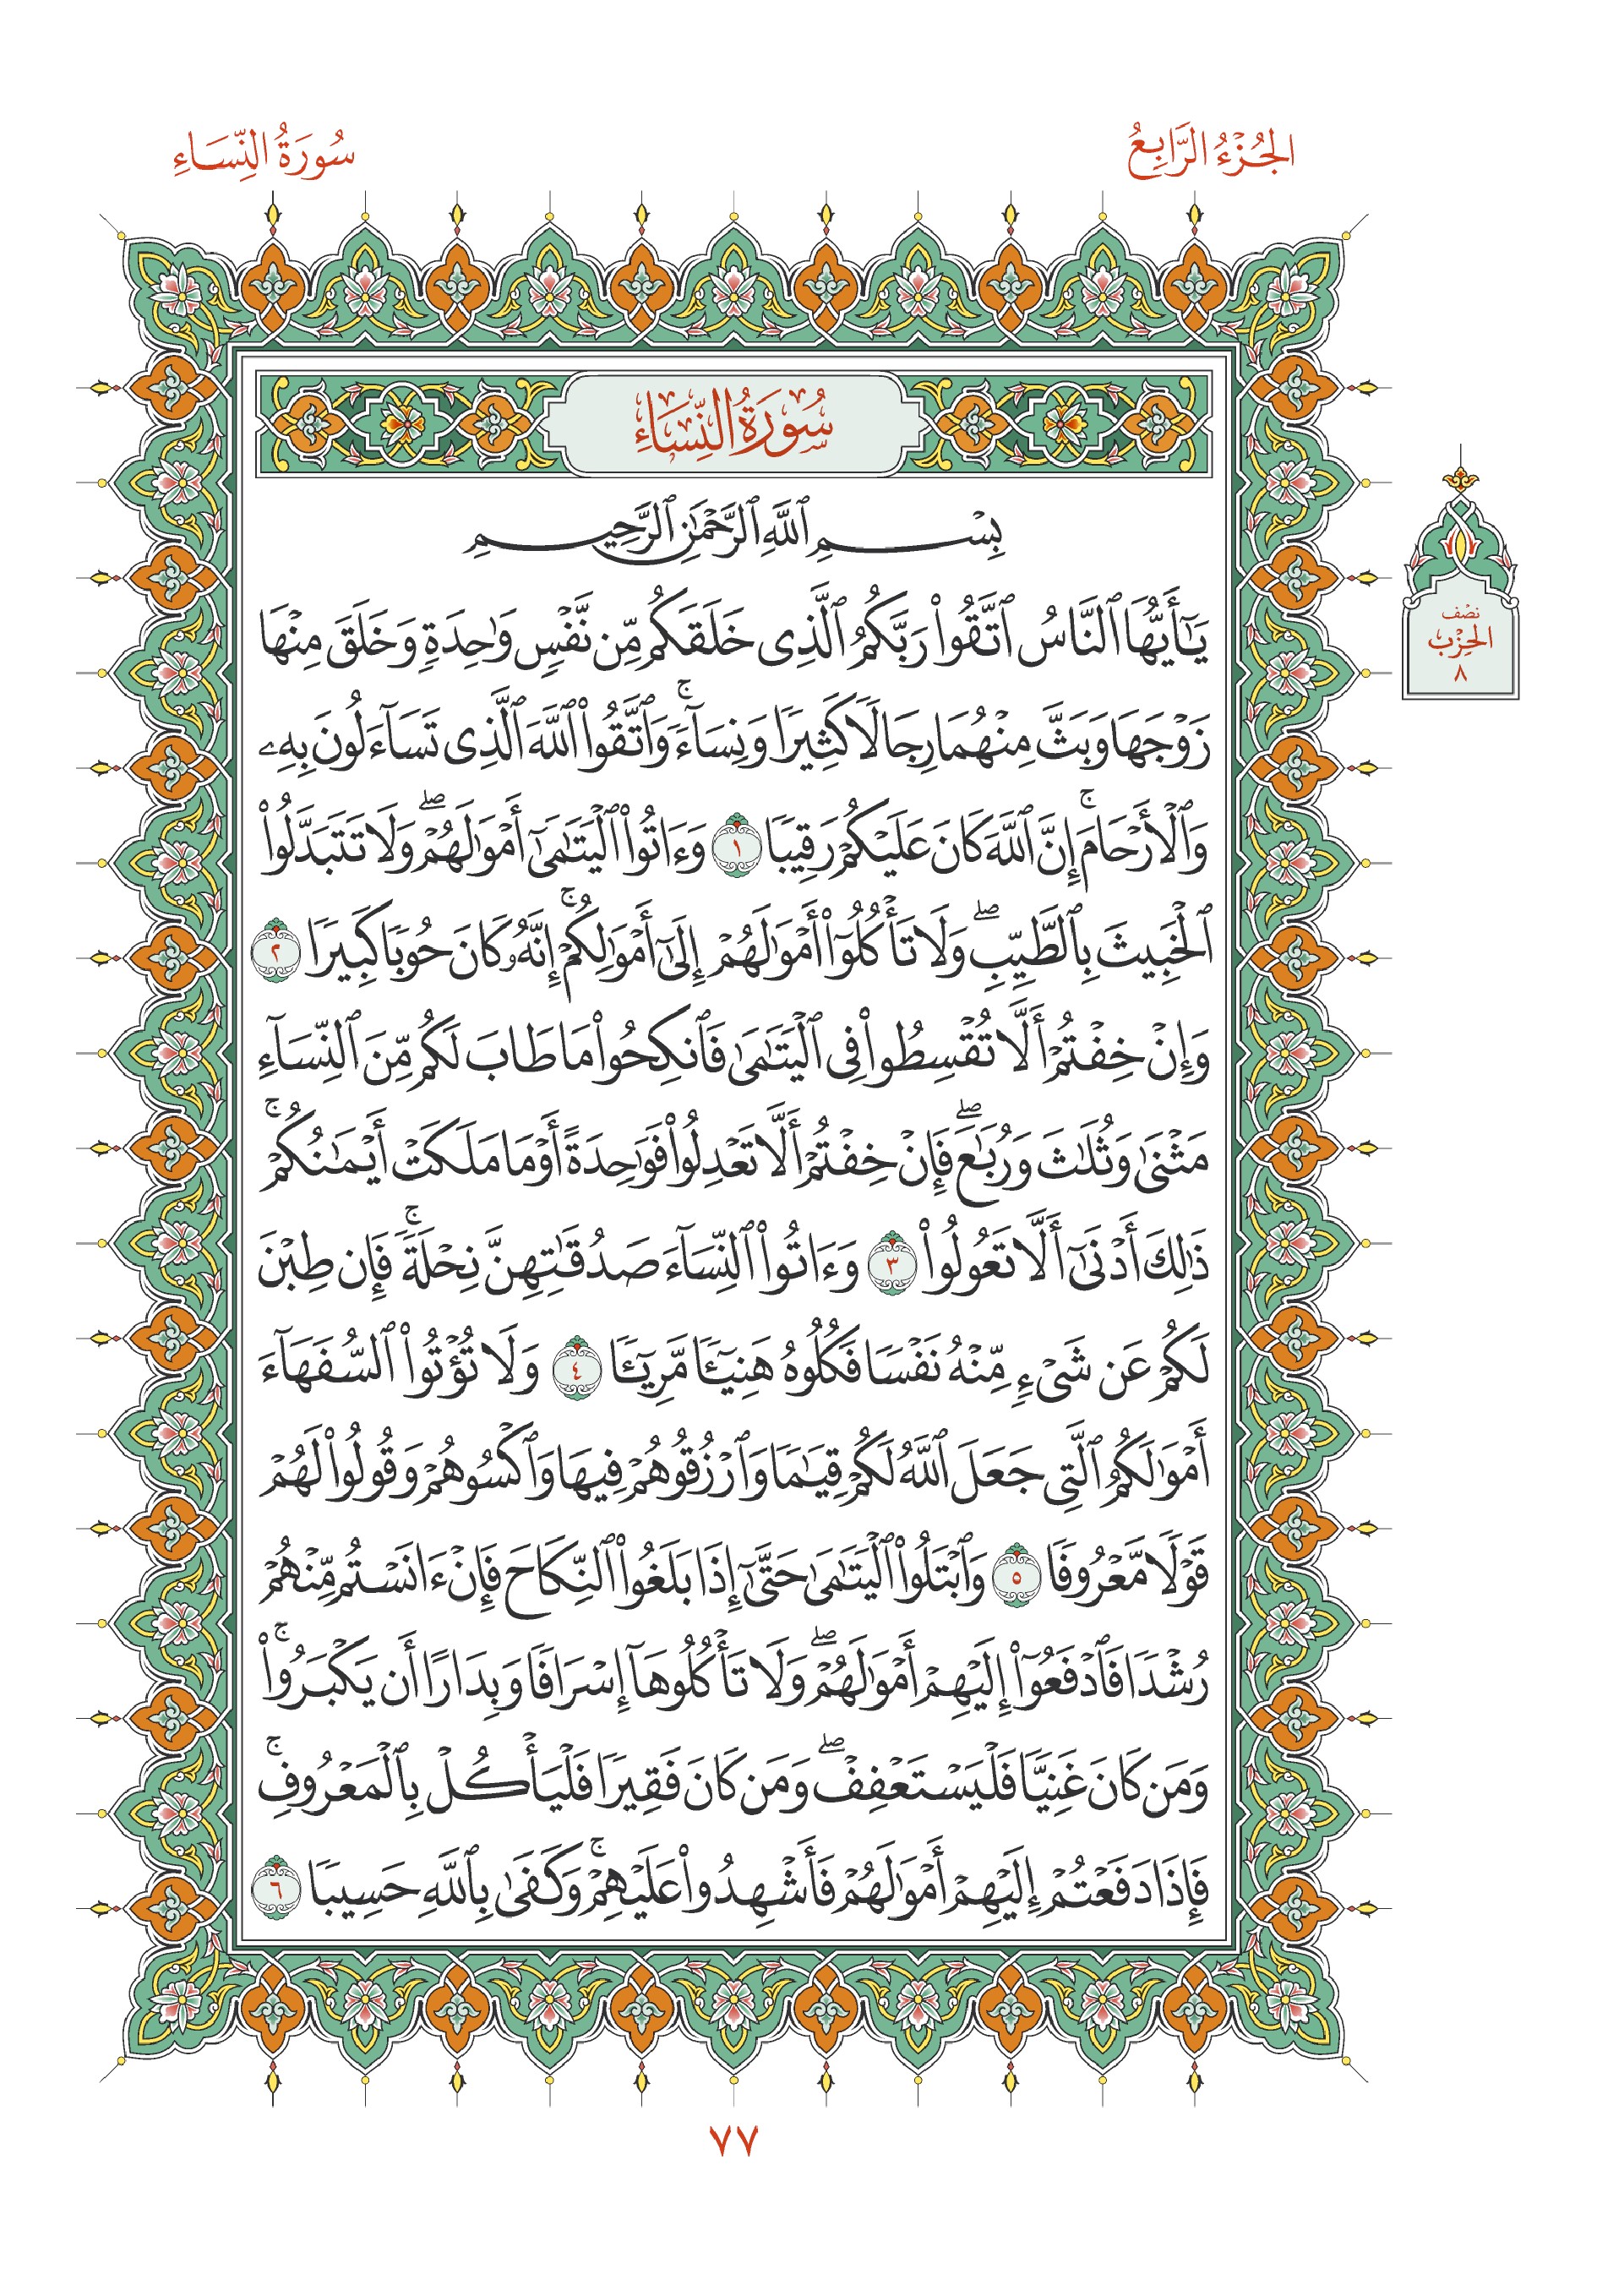 الجُزْءُ الرَّابِعُ
سُورَةُ النِّسَاءِ
سُورَةُ النِّسَاءِ
بِسْمِ ٱللَّهِ ٱلرَّحْمَٰنِ ٱلرَّحِيمِ
يَٰٓأَيُّهَا ٱلنَّاسُ ٱتَّقُوا۟ رَبَّكُمُ ٱلَّذِى خَلَقَكُم مِّن نَّفْسٍ وَٰحِدَةٍ وَخَلَقَ مِنْهَا
زَوْجَهَا وَبَثَّ مِنْهُمَا رِجَالًا كَثِيرًا وَنِسَآءً ۚ وَٱتَّقُوا۟ ٱللَّهَ ٱلَّذِى تَسَآءَلُونَ بِهِۦ
وَٱلْأَرْحَامَ ۚ إِنَّ ٱللَّهَ كَانَ عَلَيْكُمْ رَقِيبًا ١ وَءَاتُوا۟ ٱلْيَتَٰمَىٰٓ أَمْوَٰلَهُمْ ۖ وَلَا تَتَبَدَّلُوا۟
ٱلْخَبِيثَ بِٱلطَّيِّبِ ۖ وَلَا تَأْكُلُوٓا۟ أَمْوَٰلَهُمْ إِلَىٰٓ أَمْوَٰلِكُمْ ۚ إِنَّهُۥ كَانَ حُوبًا كَبِيرًا ٢
وَإِنْ خِفْتُمْ أَلَّا تُقْسِطُوا۟ فِى ٱلْيَتَٰمَىٰ فَٱنكِحُوا۟ مَا طَابَ لَكُم مِّنَ ٱلنِّسَآءِ
مَثْنَىٰ وَثُلَٰثَ وَرُبَٰعَ ۖ فَإِنْ خِفْتُمْ أَلَّا تَعْدِلُوا۟ فَوَٰحِدَةً أَوْ مَا مَلَكَتْ أَيْمَٰنُكُمْ ۚ
ذَٰلِكَ أَدْنَىٰٓ أَلَّا تَعُولُوا۟ ٣ وَءَاتُوا۟ ٱلنِّسَآءَ صَدُقَٰتِهِنَّ نِحْلَةً ۚ فَإِن طِبْنَ
لَكُمْ عَن شَىْءٍ مِّنْهُ نَفْسًا فَكُلُوهُ هَنِيٓـًٔا مَّرِيٓـًٔا ٤ وَلَا تُؤْتُوا۟ ٱلسُّفَهَآءَ
أَمْوَٰلَكُمُ ٱلَّتِى جَعَلَ ٱللَّهُ لَكُمْ قِيَٰمًا وَٱرْزُقُوهُمْ فِيهَا وَٱكْسُوهُمْ وَقُولُوا۟ لَهُمْ
قَوْلًا مَّعْرُوفًا ٥ وَٱبْتَلُوا۟ ٱلْيَتَٰمَىٰ حَتَّىٰٓ إِذَا بَلَغُوا۟ ٱلنِّكَاحَ فَإِنْ ءَانَسْتُم مِّنْهُمْ
رُشْدًا فَٱدْفَعُوٓا۟ إِلَيْهِمْ أَمْوَٰلَهُمْ ۖ وَلَا تَأْكُلُوهَآ إِسْرَافًا وَبِدَارًا أَن يَكْبَرُوا۟ ۚ
وَمَن كَانَ غَنِيًّا فَلْيَسْتَعْفِفْ ۖ وَمَن كَانَ فَقِيرًا فَلْيَأْكُلْ بِٱلْمَعْرُوفِ ۚ
فَإِذَا دَفَعْتُمْ إِلَيْهِمْ أَمْوَٰلَهُمْ فَأَشْهِدُوا۟ عَلَيْهِمْ ۚ وَكَفَىٰ بِٱللَّهِ حَسِيبًا ٦
نصْف
الحِزْب
٨
٧٧